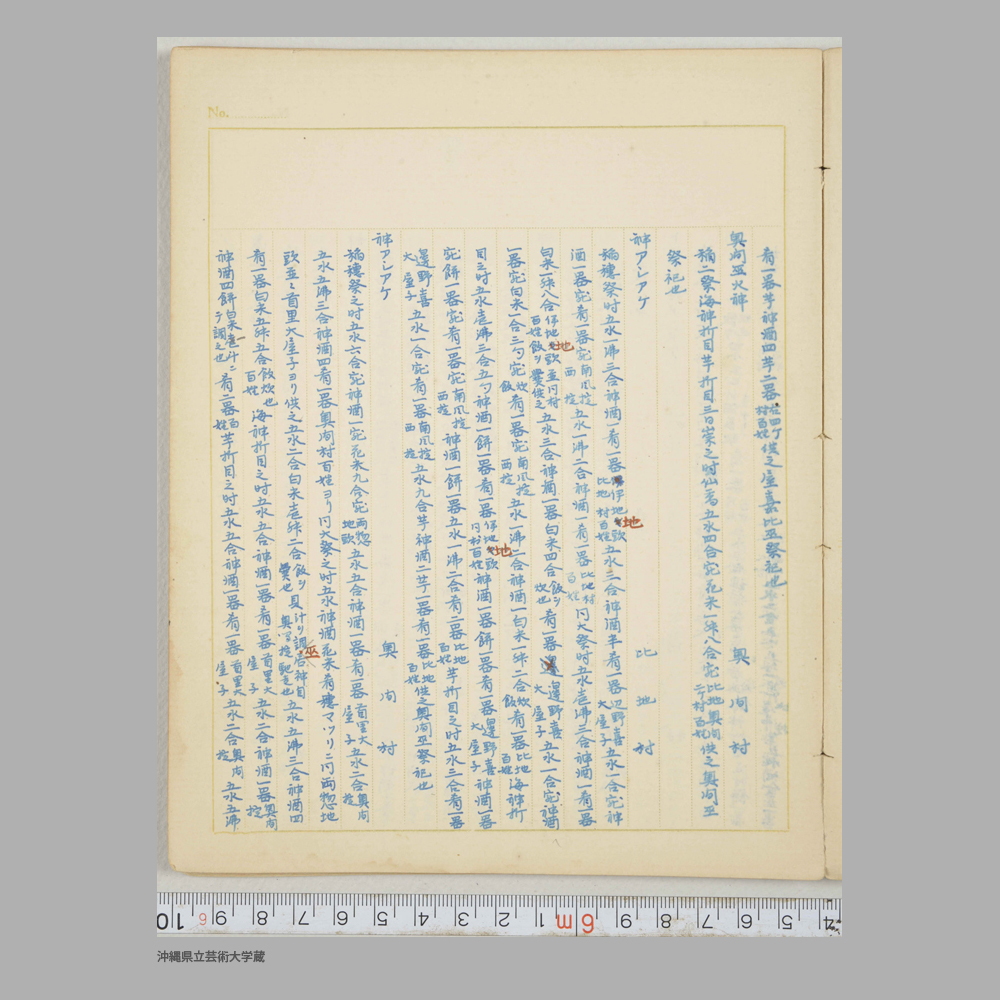 No.
肴一器芋神酒四芋二器 村百姓 供之屋嘉比巫祭祀也
奥間巫火神 奥間村
稲二祭海神折目芋折目三日崇之時仙香五水四合宛花米一舛八合宛 比地奥間二ケ村百姓 供之奥間巫
祭祀也
神アシアゲ 比地村
稲穂祭之時五水一沸三合神酒一肴一器 伊地 地 比地村百姓 五水三合神酒半肴一器 辺野喜大屋子 五水一合宛神
酒一器宛肴一器宛 南風掟 西掟 五水一沸二合神酒一肴一器 比地村百姓 同大祭時五水壱沸三合神酒一肴一器
白米一舛八合 伊地 地 同村百姓飯ヲ 供之 五水三合神酒一器白米四合 飯ヲ炊也 肴一器 邊野喜大屋子 五水一合宛神酒
一器宛白米一合三勺宛 炊飯 肴一器宛 南風掟 西掟 五水一沸二合神酒一白米一舛二合 炊飯 肴一器 比地百姓 海神折
目之時五水壱沸三合五勺神酒一餅一器肴一器 伊地 地 同村百姓 神酒一器餅一器肴一器 邊野喜大屋子 神酒一器
宛餅一器宛肴一器宛 南風掟 西掟 神酒一餅一器五水一沸二合肴二器 比地百姓 芋折目之時五水三合肴一器
邊野喜大屋子 五水一合宛肴一器 南風掟 西掟 五水九合芋神酒二芋一器肴一器 比地百姓 供之奥間巫祭祀也
神アシアゲ 奥間村
稲穂祭之時五水六合宛神酒一宛花米九合宛 両惣地 五水五合神酒一器肴一器 首里大屋子 五水二合 奥間掟
五水五沸三合神酒四肴一器奥間村百姓ヨリ同大祭之時五水神酒花米肴穂マツリニ同両惣地
首里大屋子ヨリ供之五水二合白米壱舛二合 飯ヲ 也 巫 五水五沸三合神酒四
肴一器白米五舛五合 飯炊也百姓 海神折目之時五水五合神酒一器肴一器 首里大屋子 五水二合神酒一器 奥間掟
神酒四餅 白米壱斗二 ヲ調之也 肴二器 百姓 芋折目之時五水五合神酒一器肴一器 首里大屋子 五水二合 奥間掟 五水五沸
10 9 8 7 6 5 4 3 2 1 6m 9 8 7 6 5 4
沖縄県立芸術大学蔵